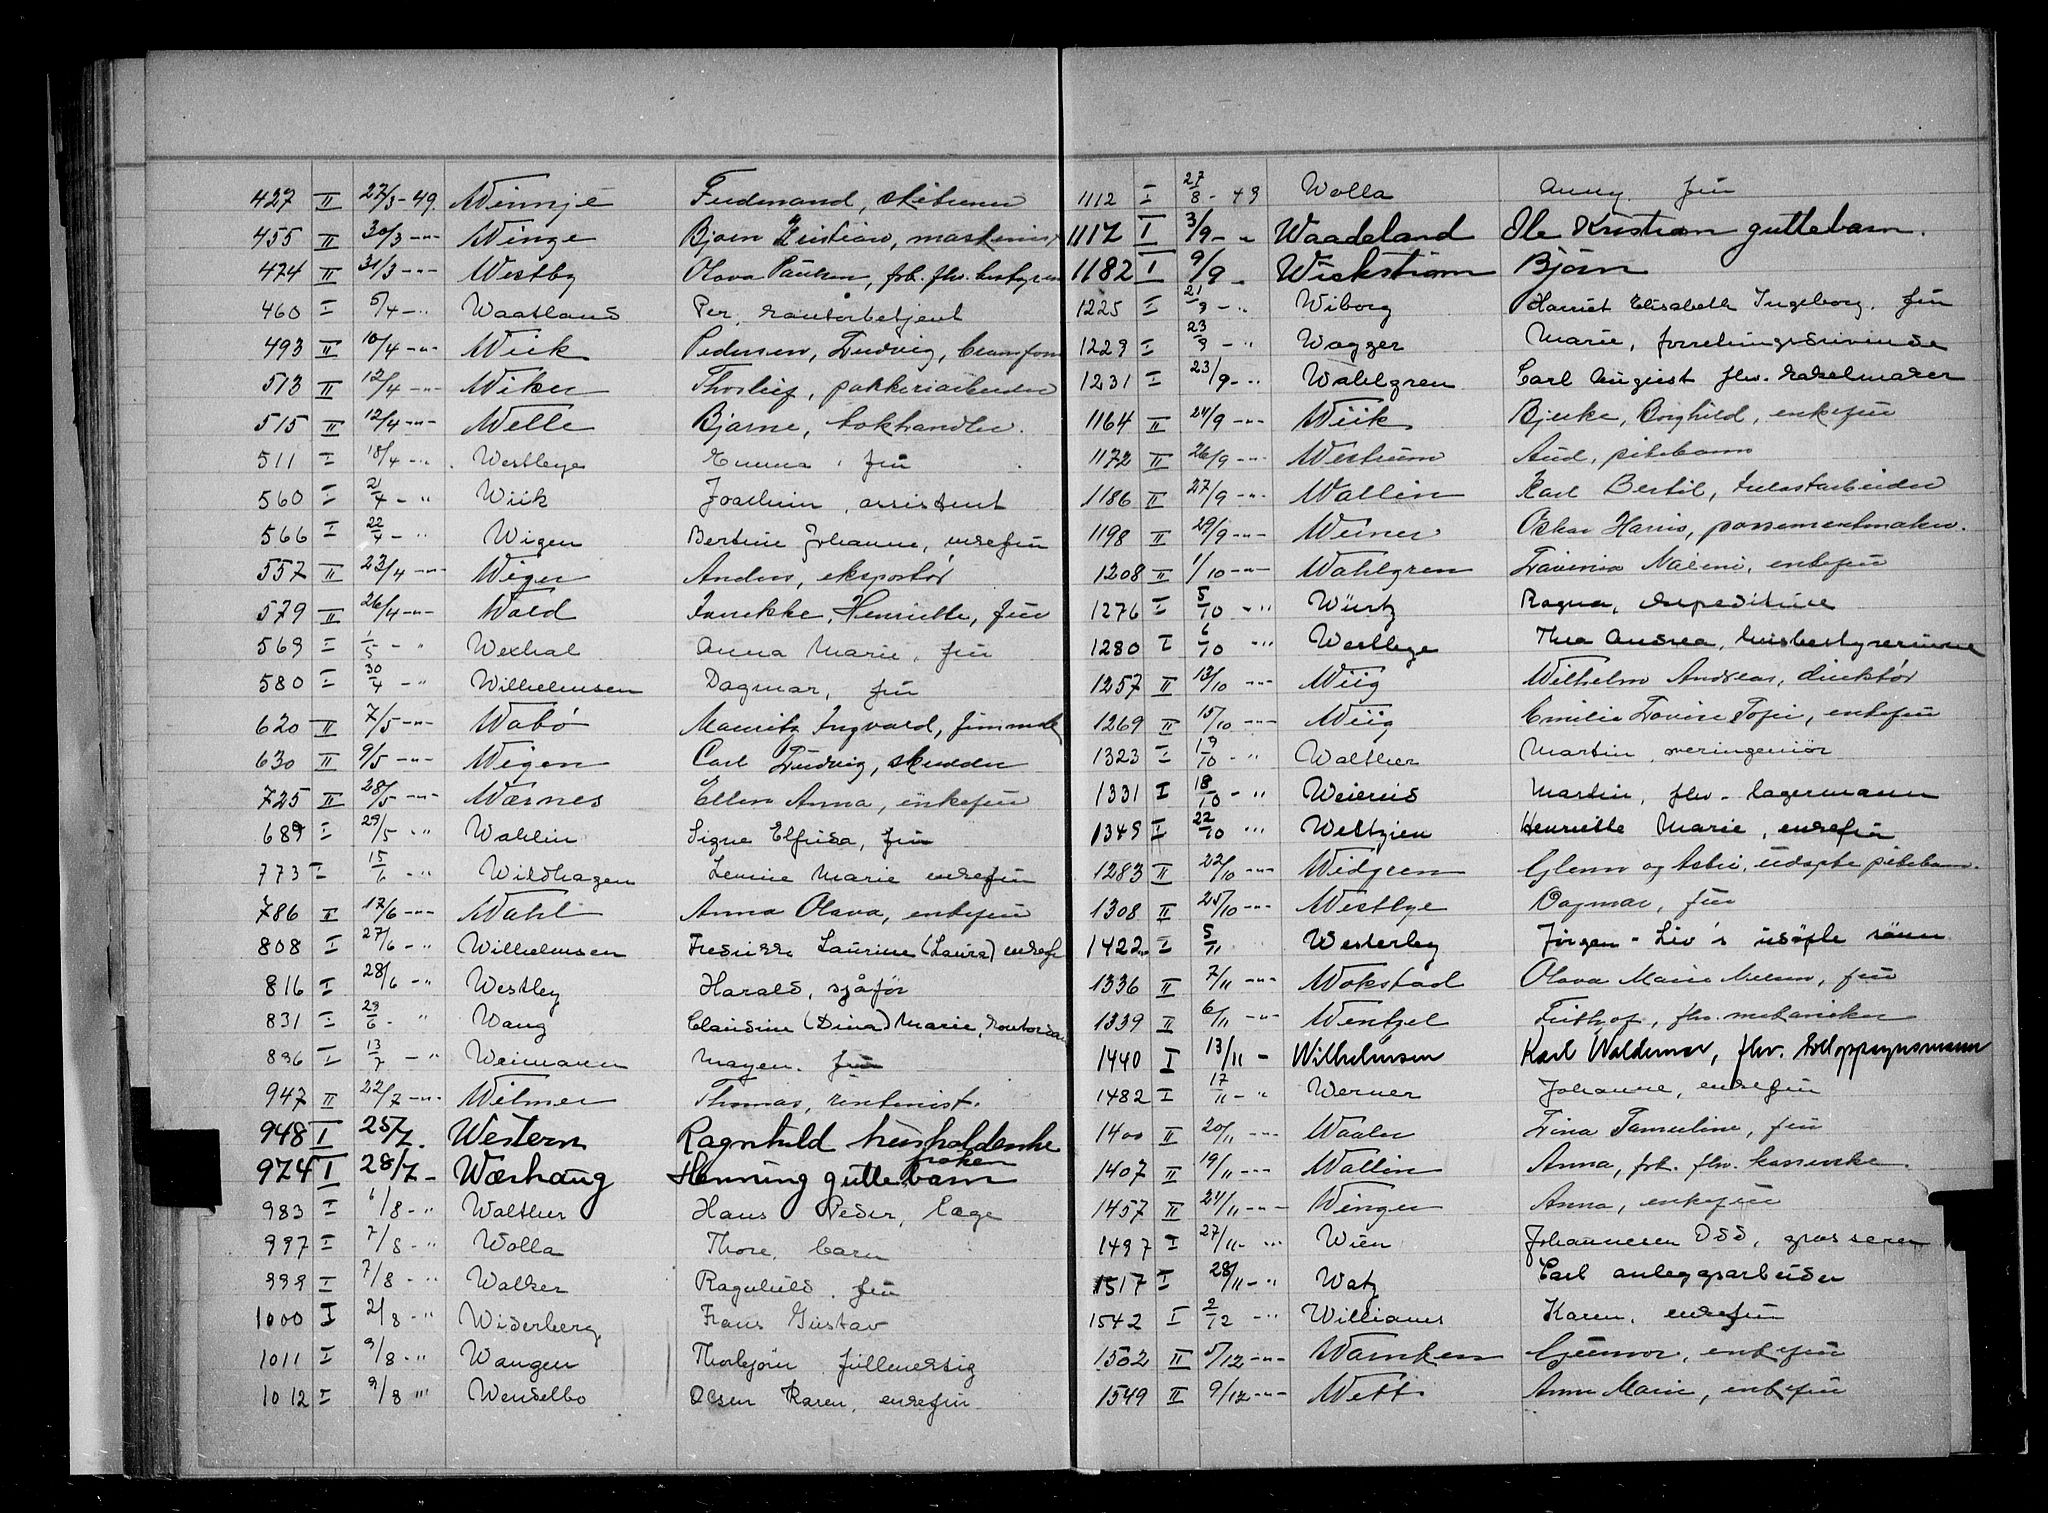 427 II 27/3-49. Winnje Ferdinand,
455 II 30/3 -"- Winge Bjørn Kristian, maskinist
474 II 31/3 -"- Westby Olava Pauline, frk. fhv. bestyrer
460 I 5/4 -" Waatland Per, kontorbetjent
493 II 10/4 -"- Wiik Pedersen, Ludvig,
513 II 12/4 -"- Wiker Thorleif, pakkeriarbeider
515 II 12/4 -"- Welle Bjarne, bokhandler.
511 I 18/4 -" Westbye Emma, fru
560 I 2/4 -" Wiik Joachim, assistent
566 I 22/4 -" Wigen Bertine Johanne, enkefru
557 II 23/4 -"- Wiger Anders, eksportør
579 II 26/4 -"- Wold Jannikke, Henriette, fru
569 I 1/5 -" Wexhal Anna Marie, fru
580 I 30/4 -" Wilhelmsen Dagmar, fru
620 II 7/5 -"- Wabø Mauritz Ingvard,
630 II 9/5 -"- Wigen Carl Ludvig, skredder
725 II 28/5 -"- Wærnes Ellen Anna, enkefru
689 I 29/5 -" Wahlin Signe Elfrida, fru
773 I 15/6 -" Wildhagen Lemine Marie enkefru
786 II 17/6 -"- Wahl Anna Olava, enkefru
808 I 27/6 -" Wilhelmsen Fredrikke Laurine (Laura) enkefr
816 I 28/6 -" Westley Harald, sjåfør
831 I 29/6 -" Wang Claudine (Dina) Marie,
896 I 13/7 -" Weimann Magen. fru
947 II 22/7 -"- Wilmer Thomas, rentenist.
948 I 25/7. Western Ragnhild husholderske frøken
974 I 28/7 - Wærhaug Henning guttebarn
983 I 6/8 -" Walther Hans Peder, læge
997 I 7/8 -" Wolla Thore, barn
999 I 7/8 -" Walker Ragnhild, fru
1000 I 2/8 -" Widerberg, Frans Gustav
1011 I 9/8 -" Wangen Thorbjørn fullmektig
1012 I 9/8 " Wendelbo Olsen Karen, enkefru
1112 I 27/8 - 49 Wolla Anny fru
1117 I 3/9 - " Waadeland Ole Kristian guttebarn.
1182 I 9/9 - Wickstrøm Bjørn
1225 I 21/9 -" Wiborg Harriet Elisabeth Ingeborg. fru
1229 I 23/9 -" Wagger Marie, forretningsdrivende
1231 I 23/9 -" Wahlgren Carl August fhv. kakelmaker
1164 II 24/9 -"- Wiik Bjerke, Borghild, enkefru
1172 II 26/9 -"- Westrum Aud, pikebarn
1186 II 27/9 -"- Wallin Karl Bertil,
1198 II 29/9 -"- Weiner Oskar Harris, possementmaker.
1208 II 1/10 -"- Wahlgren Lavinia Naëmi, enkefru
1276 I 5/10 -" Würtz Ragna, ekspeditrise
1280 I 6/10 " Westbye Thea Andrea, husbestyrerinne
1257 II 13/10 -"- Wiig Wilhelm Andreas, direktør
1269 II 15/10 -"- Wiig Emilie Lovise Sofie, enkefru
1323 I 19/10 -" Walther Martin, overingeniør
1331 I 18/10 -" Weiereid Martin, fhv. lagermann
1349 I 22/10 " Weltzien Henriette Marie, enkefru
1283 II 22/10 -"- Widgren Glenn og Astri, udøpte pikebarn.
1308 II 25/10 -"- Westbye Dagmar, fru
1422 I 5/11 Westerby Jørgen - Liv's udøpte sønn
1336 II 7/11 -"- Wokstad Olava Marie Nielsen, fru
1339 II 6/11 -"- Wentzel Frithjof, fhv. mekaniker
1440 I 13/11 - Wilhelmsen Karl Waldemar, fhv. tolloppsynsmann
1482 I 17/11 -" Werner Johanne, enkefru
1400 II 20/11 -"- Waaler Lina Tomeline, fru
1407 II 19/11 -"- Wallin Anna, frk. fhv. kassierske.
1457 II 24/11 -"- Winger Anna, enkefru
1497 I 27/11 -" Wien Johannesen Odd, grosserer
1517 I 28/11 -" Watz Carl anleggsarbeider
1542 I 2/12 -" Williams Karen, enkefru
1502 II 5/12 -"- Warnken Gunvor, enkefru
1549 II 9/12 -"- Wett Anne Marie, enkefru